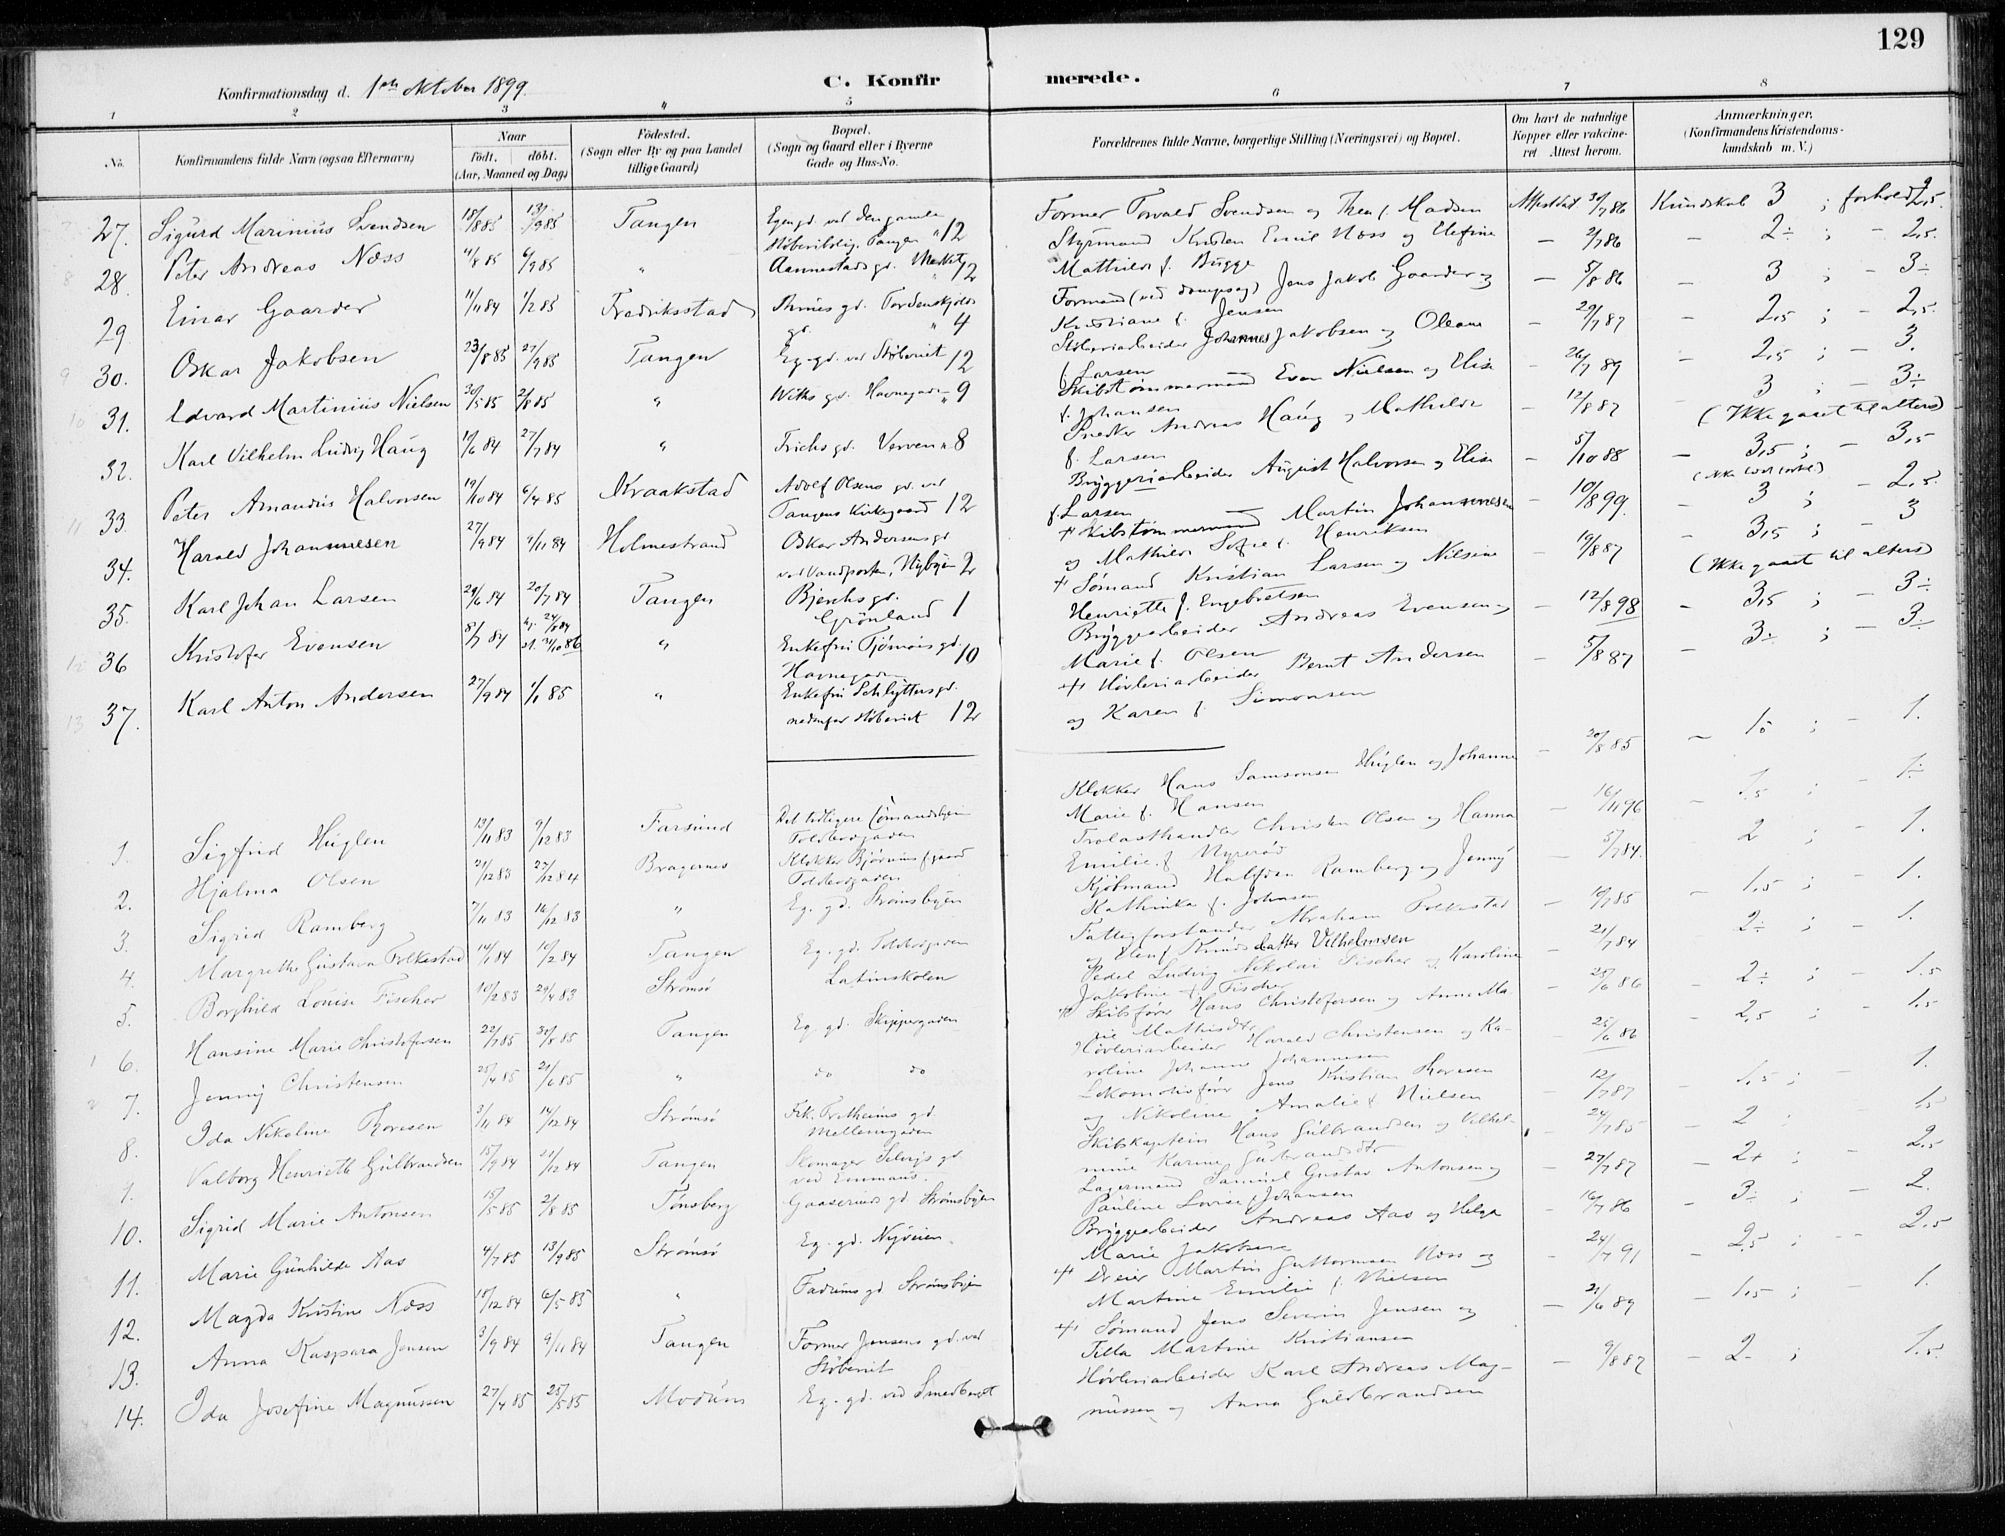 129
Konfirmationsdag d. 1ste Oktober 1899.
C. Konfirmerede.
1 2 3 4 5 6 7 8
No.
Konfirmandens fulde Navn (ogsaa Efternavn)
Naar
født. døbt.
(Aar, Maaned og Dag)
Fødested.
(Sogn eller By og paa Landet
tillige Gaard)
Bopæl.
(Sogn og Gaard eller i Byerne
Gade og Hus-No.
Forældrenes fulde Navne, borgerlige Stilling (Næringsvei) og Bopæl.
Om havt de naturlige
Kopper eller vakcine-
ret Attest herom.
Anmærkninger.
(Konfirmandens Kristendoms-
kundskab m. V.)
27. Sigurd Marinius Svendsen 18/8 85 13/9 85 Tangen Egen gd. ved den gamle Former Torvald Svendsen og Thea f. Madsen Attesteret 30/7 86 Kundskab 3 ; forhold 2,5.
Støberibolig. Tangen 12
28. Peter Andreas Næss 4/8 85 6/9 85 " Aannestads gd. 12 Styrmand Kristen Emil Næss og Elefine - 2/7 86 - 2÷ ; - 2,5.
Mathilde f. Bugge
29 Einar Gaarder 11/11 84 1/2 85 Fredriksstad gd. Tordenskjolds Formand (ved dampsag) Jens Jakob Gaarder og - 5/8 86 - 3 ; - 3÷
gd. " 4 Kristiane f. Jensen
30. Oskar Jakobsen 23/8 85 27/9 85 Tangen Eg. gd. ved Støberiet 12 Støberiarbeider Johannes Jakobsen og Oleane - 29/7 87 - 2,5 ; - 2,5.
f. Larsen
31. Edvard Martinius Nielsen 30/5 85 2/8 85 " Wiks gd. Havnegaden 9 Skibstømmermand Even Nielsen og Elise - 26/7 89 - 2,5 ; - 3.
f. Johansen
32. Karl Vilhelm Ludvig Haug 17/6 84 27/7 84 " Frichs gd. Verven 8 Snedker Andreas Haug og Mathilde - 12/8 87 3 ; - 3÷
f. Larsen (Ikke gaaet til alters)
33. Peter Amandus Halvorsen 19/10 84 6/4 85 Kraakstad Adolf Olsens gd. ved Bryggeriarbeider August Halvorsen og Elise - 5/10 88 - 3,5 ; - 3,5
Tangens Kirkegaard 12 f. Larsen
34. Harald Johannesen 27/9 84 9/11 84 Holmestrand Oskar Andersens gd + Skibstømmermand Martin Johannesen - 10/8 99. - 3 ; - 2,5.
ved Vandporten, Nybyen 2 og Mathilde Sofie f. Henriksen
35. Karl Johan Larsen 29/6 84 20/7 84 Tangen Bjerchs gd. + Sømand Kristian Larsen og Nilsine - 19/8 87 - 3,5 ; - 3
Grønland 1 Henriette f. Engebretsen (Ikke gaaet til alters)
36 Kristofer Evensen 8/7 84 24/8 84 " Enkefru Tjømøis gd. Bryggearbeider Andreas Evensen og - 12/8 98 - 3,5 ; - 3÷
Havnegaden 10 Marie f. Olsen
37. Karl Anton Andersen 27/9 84 1/1 85 " Enkefru Schlytters gd. + Høvleriarbeider Bernt Andersen - 5/8 87 - 3÷ ; - 3÷
nedenfor Støberiet 12 og Karen f. Simonsen
1. Sigfrid Huglen 13/11 83 9/12 83 Farsund Det tidligere Sømandshjem Klokker Hans Samsonsen Huglen og Johanne - 20/8 85 - 1,5 ; - 1.
Toldbodgaden Marie f. Hansen
2. Hjalma Olsen 21/12 83 27/12 84 Bragernes Klokker Bjørnius' gaard Trælasthandler Christen Olsen og Hanna - 16/11 96 - 1,5 ; - 1÷
Toldbodgaden Emilie f. Myrerød
3. Sigrid Ramberg 7/11 83 16/12 83 " Eg. gd. Strømsbyen Kjøbmand Halfdan Ramberg og Jenny - 5/7 84. - 2 ; - 1.
Kathinka f. Johnsen
4. Margrethe Gustava Folkestad 14/1 84 10/2 84 Tangen Eg. gd. Toldbodgaden Fattigforstander Abraham Folkestad - 10/7 85 - 1,5 ; - 1.
og Elen f. Knudsdatter Vilhelmsen
5. Borghild Louise Fischer 10/2 83 29/4 83 Strømsø Latinskolen Pedel Ludvig Nikolai Fischer og Karoline - 21/7 84 - 2÷ ; - 1.
Jakobine f. Fischer
6. Hansine Marie Christofersen 22/7 85 30/8 85 Tangen Eg. gd. Skippergaden + Skibsfører Hans Christofersen og Anne Ma- - 25/6 86 - 2÷ ; - 1.5
rie Mathisdtr
7. Jenny Christensen 25/4 85 21/6 85 " do do Høvleriarbeider Harald Christensen og Ka- - 25/6 86 - 2,5 ; - 1,5
roline Johanne Johannesen
8. Ida Nikoline Thoresen 3/11 84 14/12 84 Strømsø Frk. Tretheims gd. Lokomotivfører Jens Kristian Thoresen - 12/7 87 - 1,5 ; - 1.
Mellemgaden og Nikoline Amalie f. Nielsen
9. Valborg Henriette Gulbrandsen 15/9 84 21/12 84 Tangen Skomager Selvigs gd Skibskaptein Hans Gulbrandsen og Vilhel- - 24/7 85 - 2 ; 1,5
ved Emmaus. mine Karine Gulbrandsdtr
10. Sigrid Marie Antonsen 15/5 85 2/8 85 Tønsberg Gaaserud gd Strømsbyen Lagermand Samuel Gustav Antonsen og - 27/7 87 - 2+ ; - 2,5
Pauline Lovise f. Johansen
11. Marie Gunhilde Aas 4/7 85 13/9 85 Strømsø Eg. gd. Nyveien Bryggearbeider Andreas Aas og Helga - 16/7 86 - 3÷ ; - 2.
Marie Jakobsen
12. Magda Kristine Næss 18/12 84 6/5 85 " Fadums gd Strømsbyen + Dreier Martin Guttormsen Næss og - 24/7 91 - 2,5 ; - 2.5
Martine Emilie f. Nielsen
13. Anna Kaspara Jensen 3/9 84 9/11 84 Tangen Former Jensens gd. ved + Sømand Jens Severin Jensen og - 21/6 89 - 1,5 ; - 1.
Støberiet Tilla Martine Kristiansen
14. Ida Josefine Magnussen 27/4 85 25/5 85 Modum Eg. gd. ved Smedberget Høvleriarbeider Karl Andreas Mag- - 9/8 87 - 2- ; 1.5.
nussen og Anna Guldbrandsen